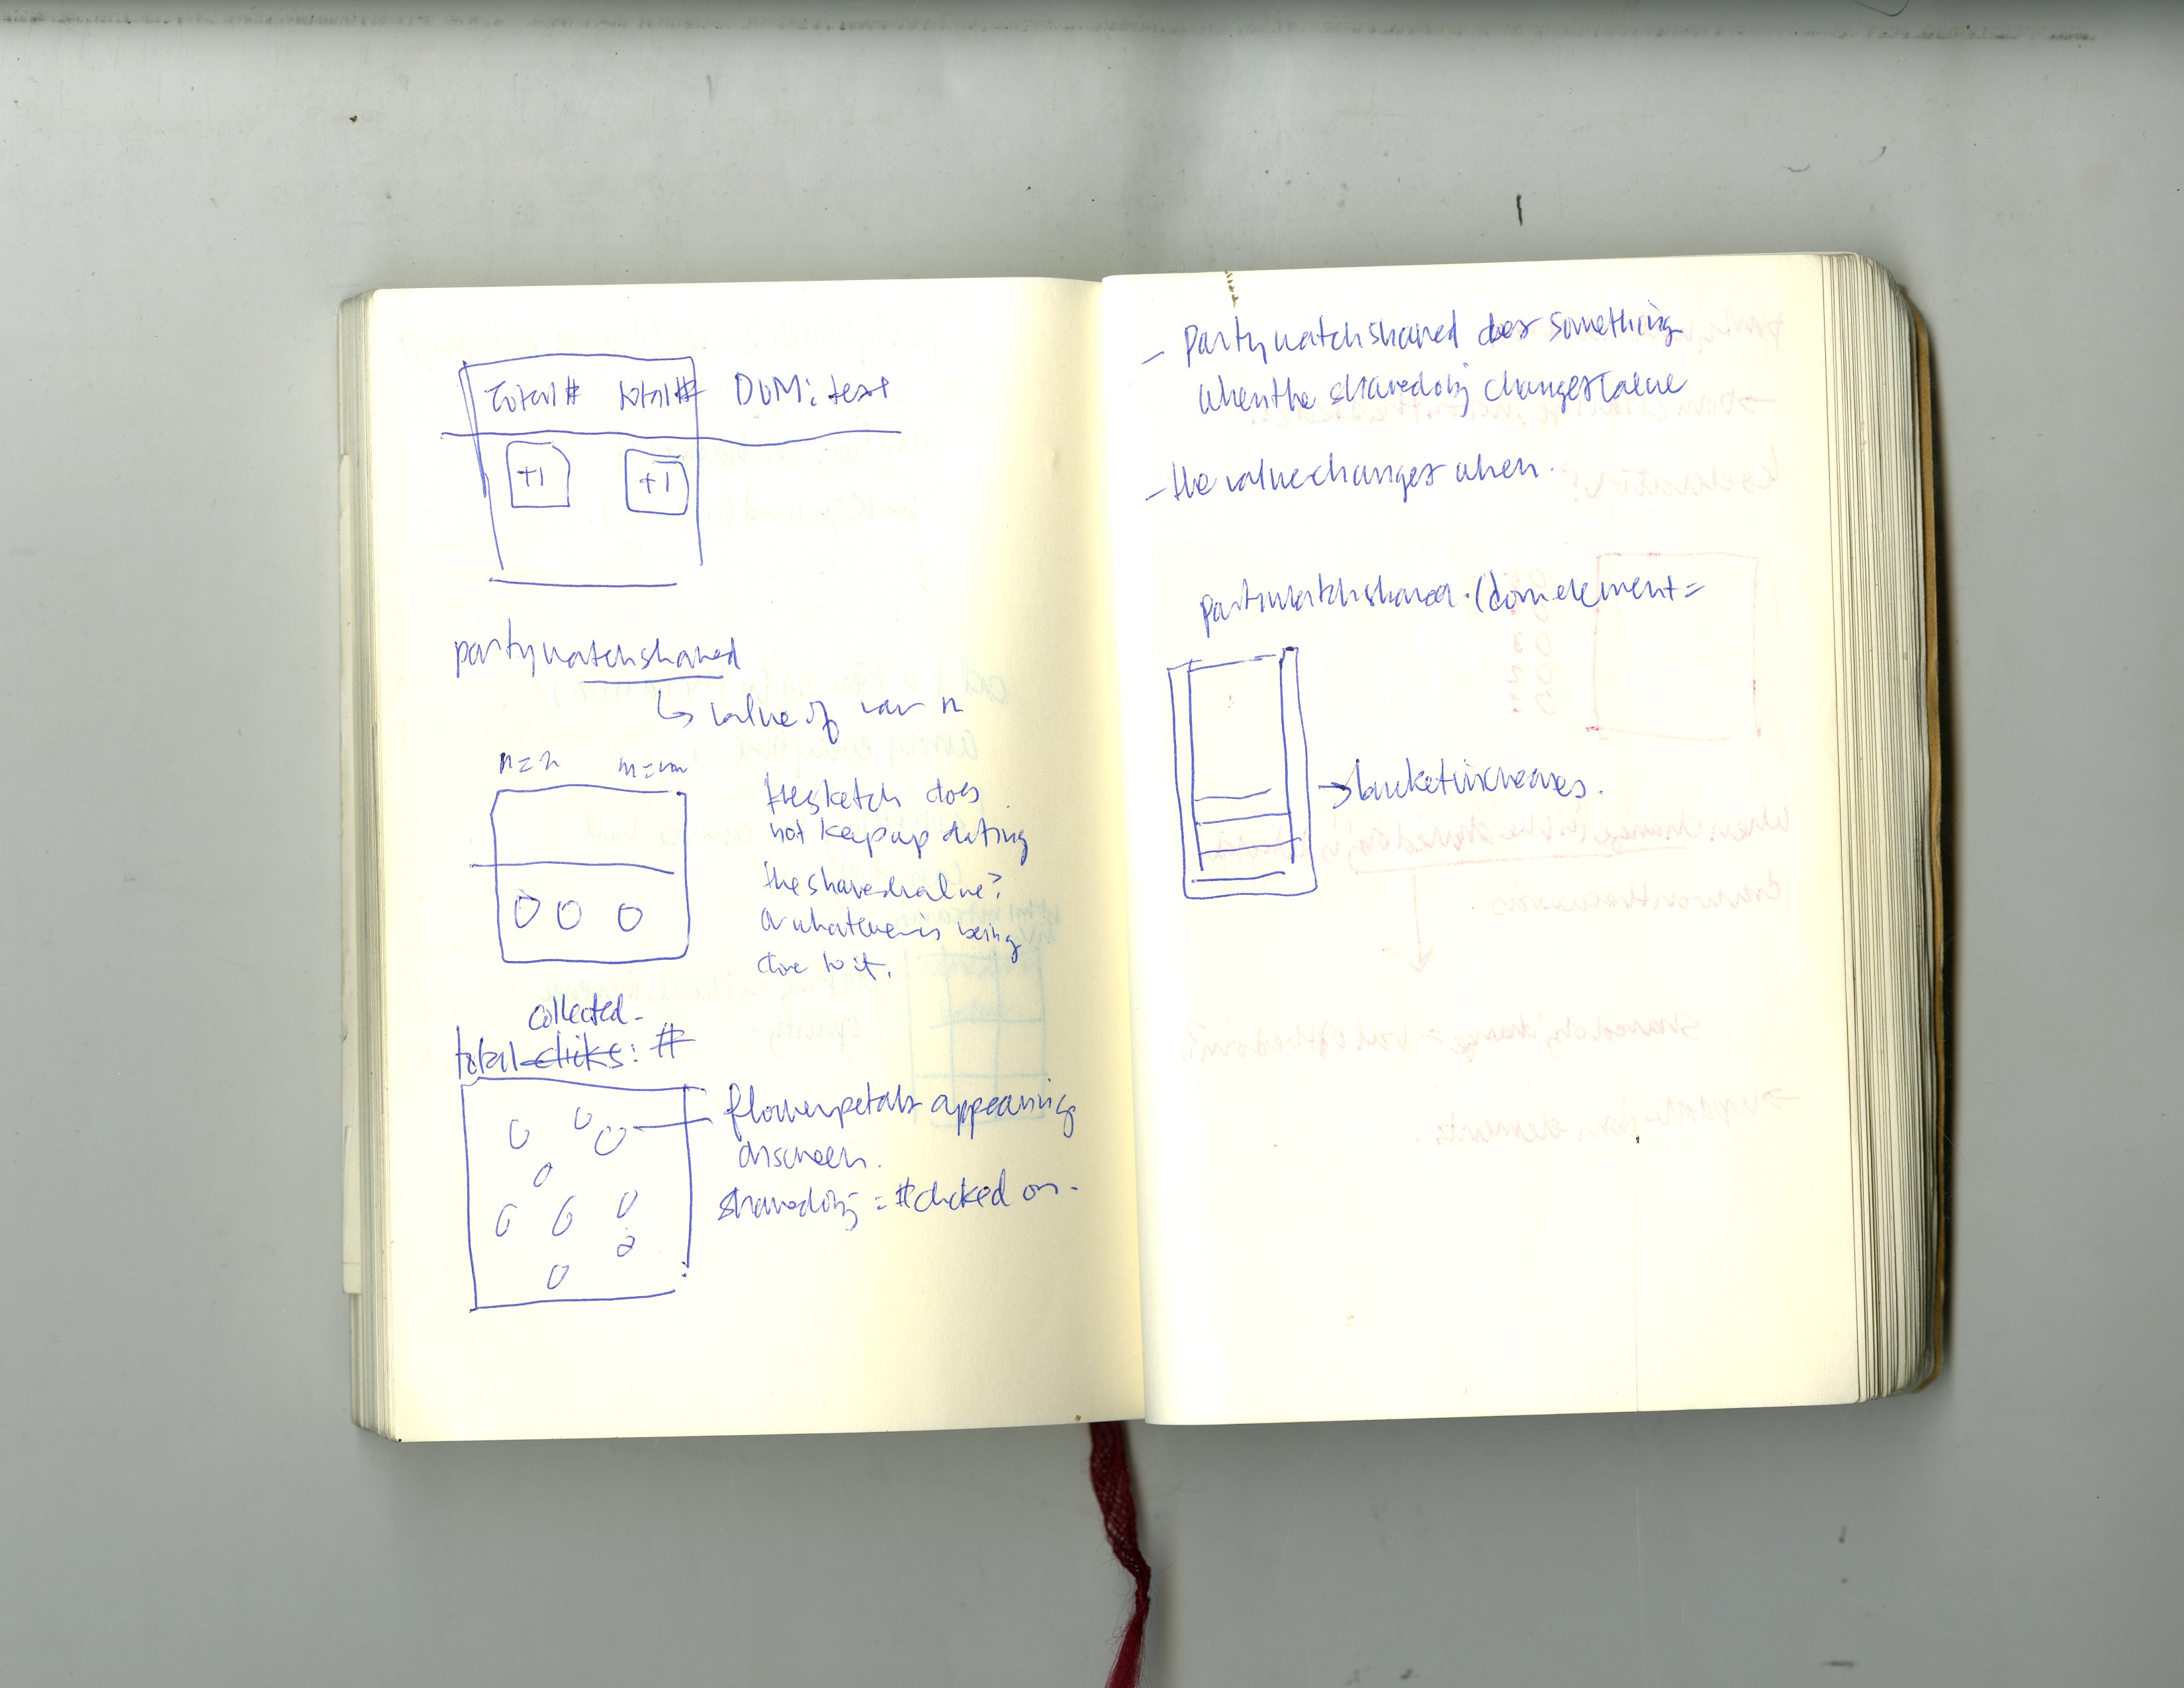 Total # total # DOM: text
+1 +1
partywatchshared
↳ value of var n
n = n m =
the sketch does
not keep updating
the shared value?
or whatever is being
done to it.
collected.
total clicks: #
flower petals appearing
onscreen.
shared obj = # clicked on.
- partywatchshared does something
when the shared obj changes value
- the value changes when.
partywatchshared.(dom element =
→ bucket increases.